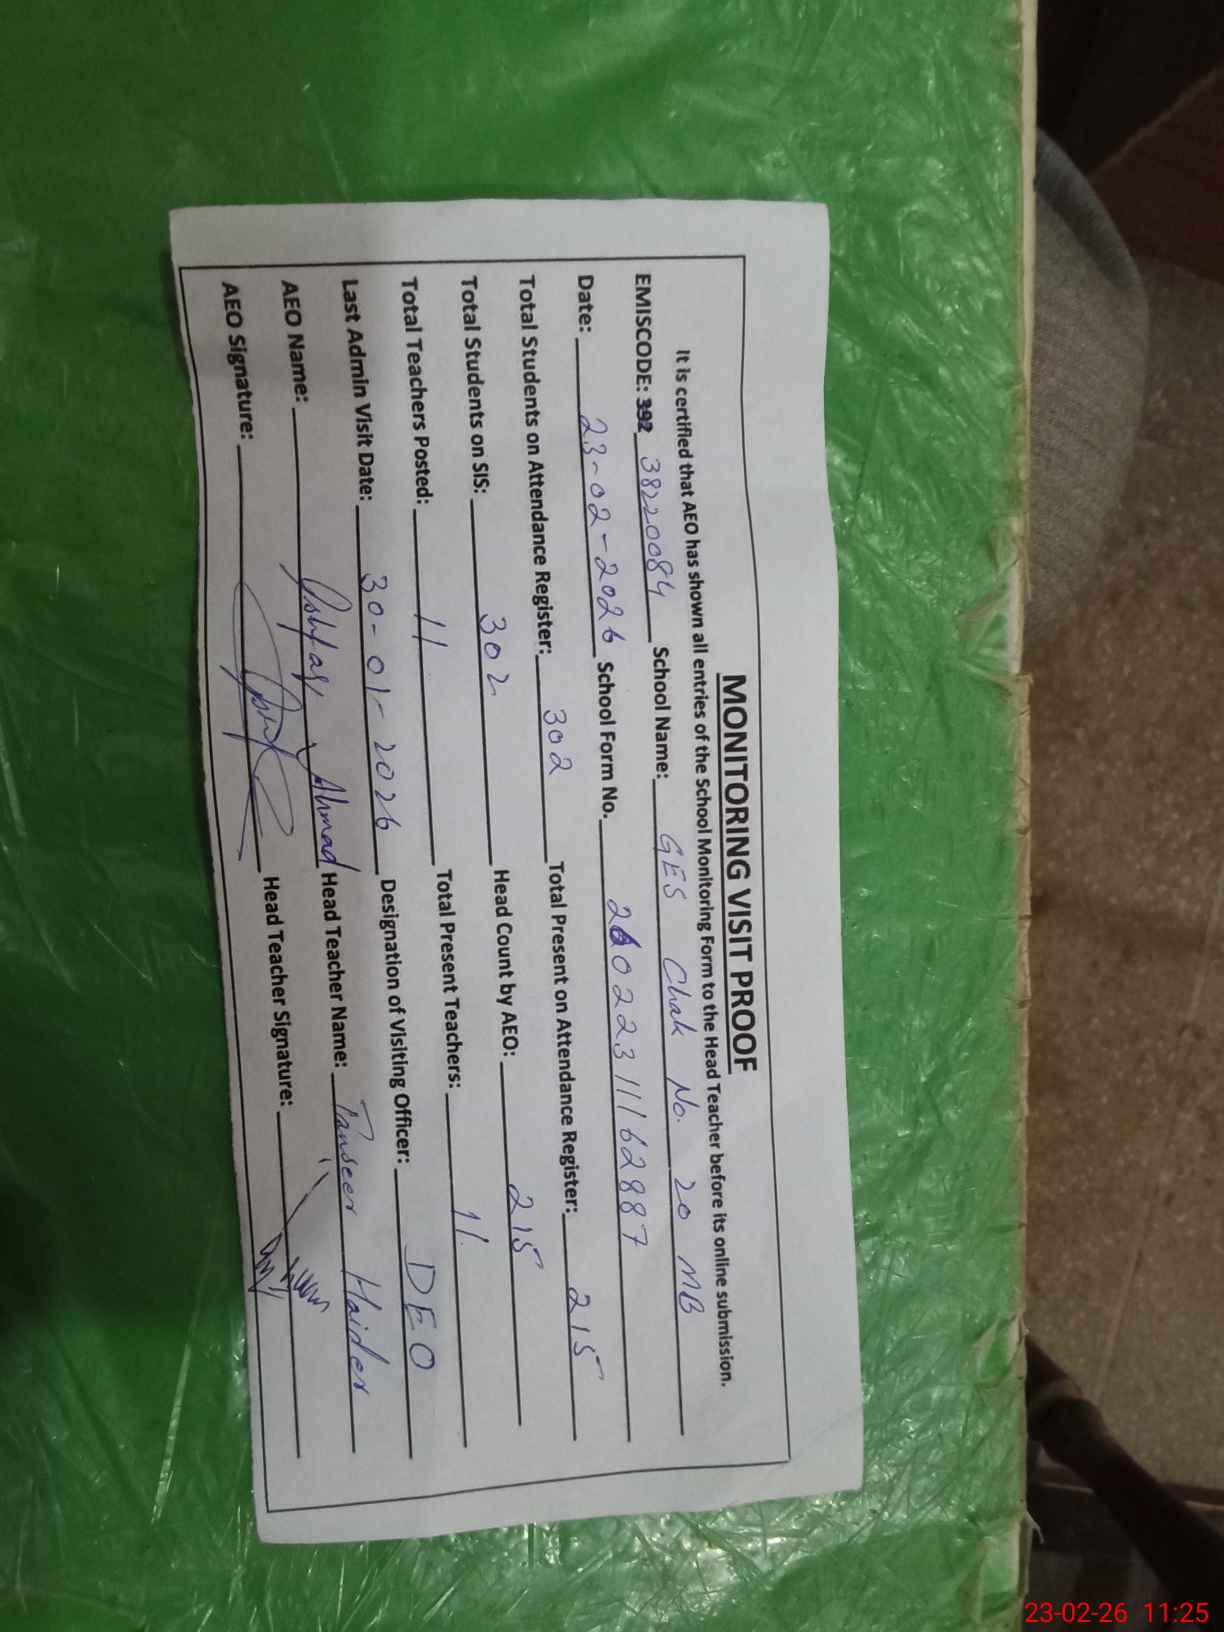 MONITORING VISIT PROOF
It is certified that AEO has shown all entries of the School Monitoring Form to the Head Teacher before its online submission.
EMISCODE: 392 38220084 School Name: GES Chak No. 20 MB
Date: 23-02-2026 School Form No. 26022311162887
Total Students on Attendance Register: 302 Total Present on Attendance Register: 215
Total Students on SIS: 302 Head Count by AEO: 215
Total Teachers Posted: 11 Total Present Teachers: 11
Last Admin Visit Date: 30-01-2026 Designation of Visiting Officer: DEO
AEO Name: Ishfaq Ahmad Head Teacher Name: Tanseer Haider
AEO Signature: Head Teacher Signature:
23-02-26 11:25